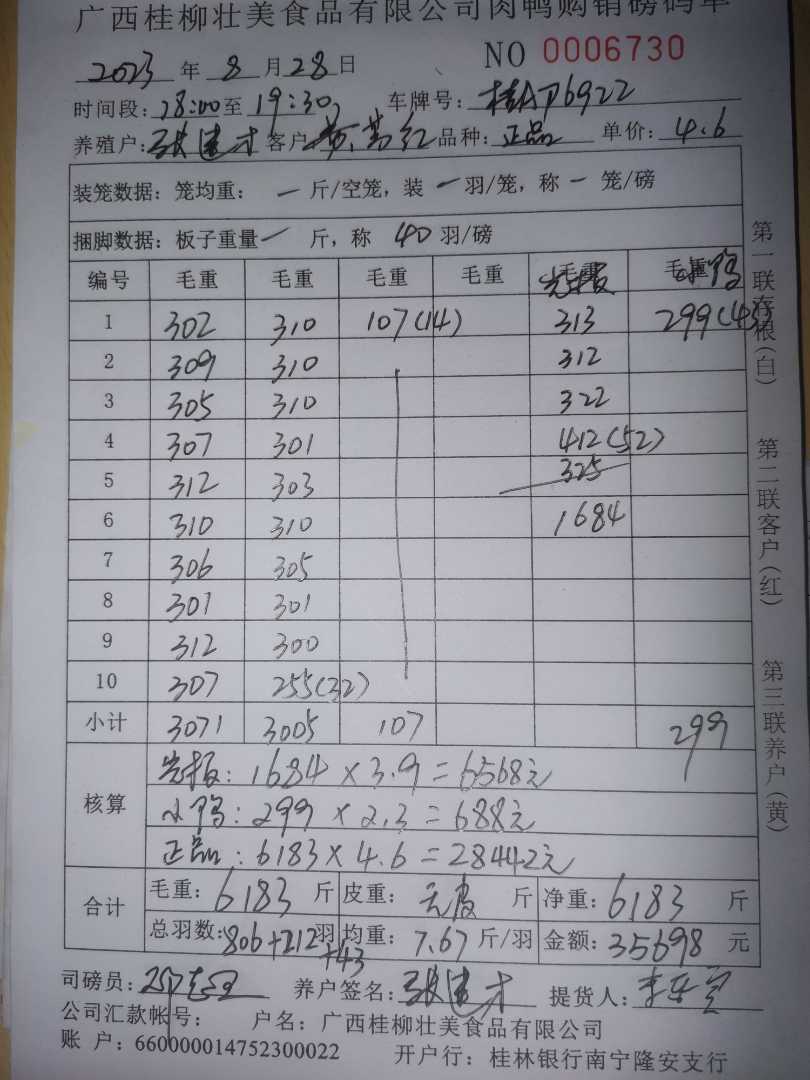 广西桂柳壮美食品有限公司肉鸭购销磅码单
2023 年 8 月 28 日 NO 0006730
时间段: 18:00 至 19:30 车牌号: 桂AP6922
养殖户: 张建才 客户 红 品种: 正品 单价: 4.6
装笼数据: 笼均重: 一 斤/空笼, 装 一 羽/笼, 称 一 笼/磅
捆脚数据: 板子重量 一 斤, 称 40 羽/磅
编号 毛重 毛重 毛重 毛重 毛重 毛重 小鸭
1 302 310 107(14) 313 299(43)
2 309 310 312
3 305 310 322
4 307 301 412(52)
5 312 303 325
6 310 310 1684
7 306 305
8 301 301
9 312 300
10 307 255(32)
小计 3071 3005 107 299
核算
1684 × 3.9 = 6568元
小鸭: 299 × 2.3 = 688元
正品: 6183 × 4.6 = 28442元
合计
毛重: 6183 斤 皮重: 无皮 斤 净重: 6183 斤
总羽数: 806+212+43 羽 均重: 7.67 斤/羽 金额: 35698 元
司磅员: 养户签名: 张建才 提货人: 李
公司汇款帐号: 户名: 广西桂柳壮美食品有限公司
账 户: 660000014752300022 开户行: 桂林银行南宁隆安支行
第一联存根(白)
第二联客户(红)
第三联养户(黄)